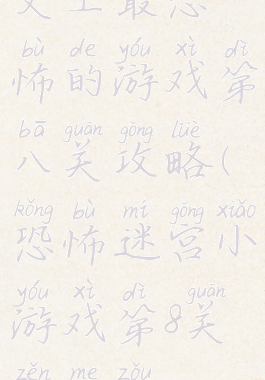 史上最恐
bù de yóu xì dì
怖的游戏第
bā guān gōng lüè
八关攻略(
kǒng bù mí gōng xiǎo
恐怖迷宫小
yóu xì dì guān
游戏第8关
zěn me zǒu